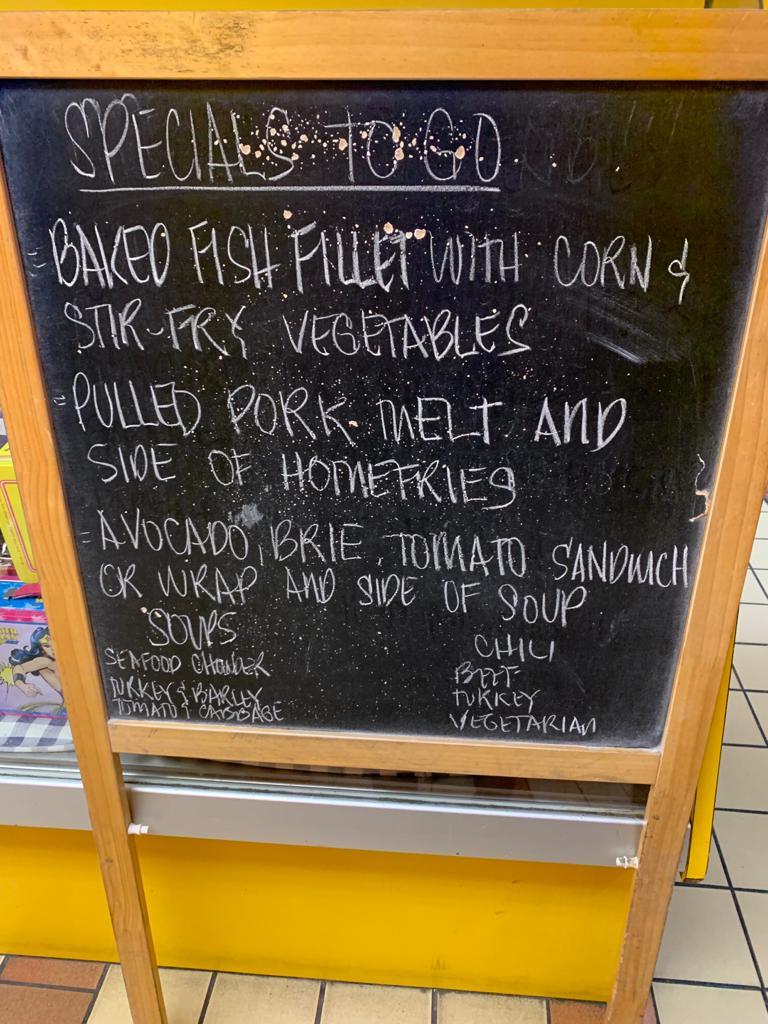 SPECIALS TO GO
= BAKED FISH FILLET WITH CORN &
STIR-FRY VEGETABLES
= PULLED PORK MELT AND
SIDE OF HOMEFRIES
= AVOCADO, BRIE, TOMATO SANDWICH
OR WRAP AND SIDE OF SOUP
SOUPS
SEAFOOD CHOWDER
TURKEY & BARLEY
TOMATO & CABBAGE
CHILI
BEEF
TURKEY
VEGETARIAN